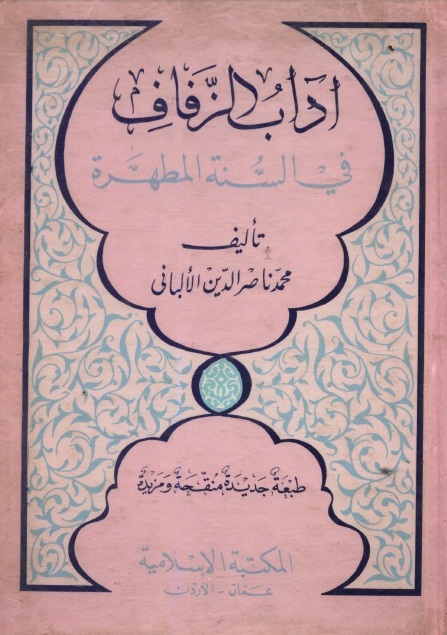 آدَابُ الزَّفَافِ
في السُّنة المطهَّرة
تأليف
محمد ناصر الدين الألباني
طبعَة جَديدَة منقّحَة ومزيدَة
المكتبة الإسلامية
عمّان - الأردن